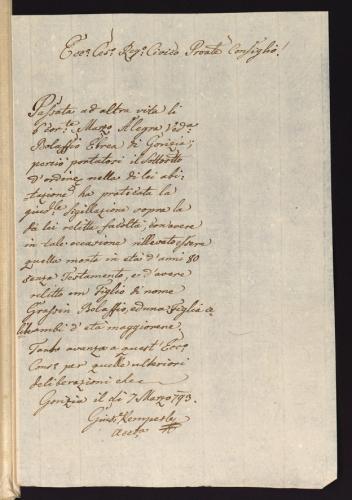 Ecc:º Ces:º Reg:º Civico Prov.te Consiglio!
Passata ad altra vita li
6 cor:te Marzo Alegra Ved:a
Bolaffio Ebrea di Gorizia;
perciò portatosi il sottos:tto
d'ordine nella di lei abi-
tazione ha praticata la
giud:le Sigillazione sopra la
di lei relitta facoltà, con avere
in tale occasione rillevato essere
quella morta in età d'anni 80
senza Testamento, e d'avere
relitto un Figlio di nome
Grassin Bolaffio, ed una Figlia
ambi d'età maggiorene,
Tanto avanza a quest' Ecc:o
Cons:o per quelle ulteriori
deliberazioni che
Gorizia il di 7 Marzo 793.
Gius:e Kemperle